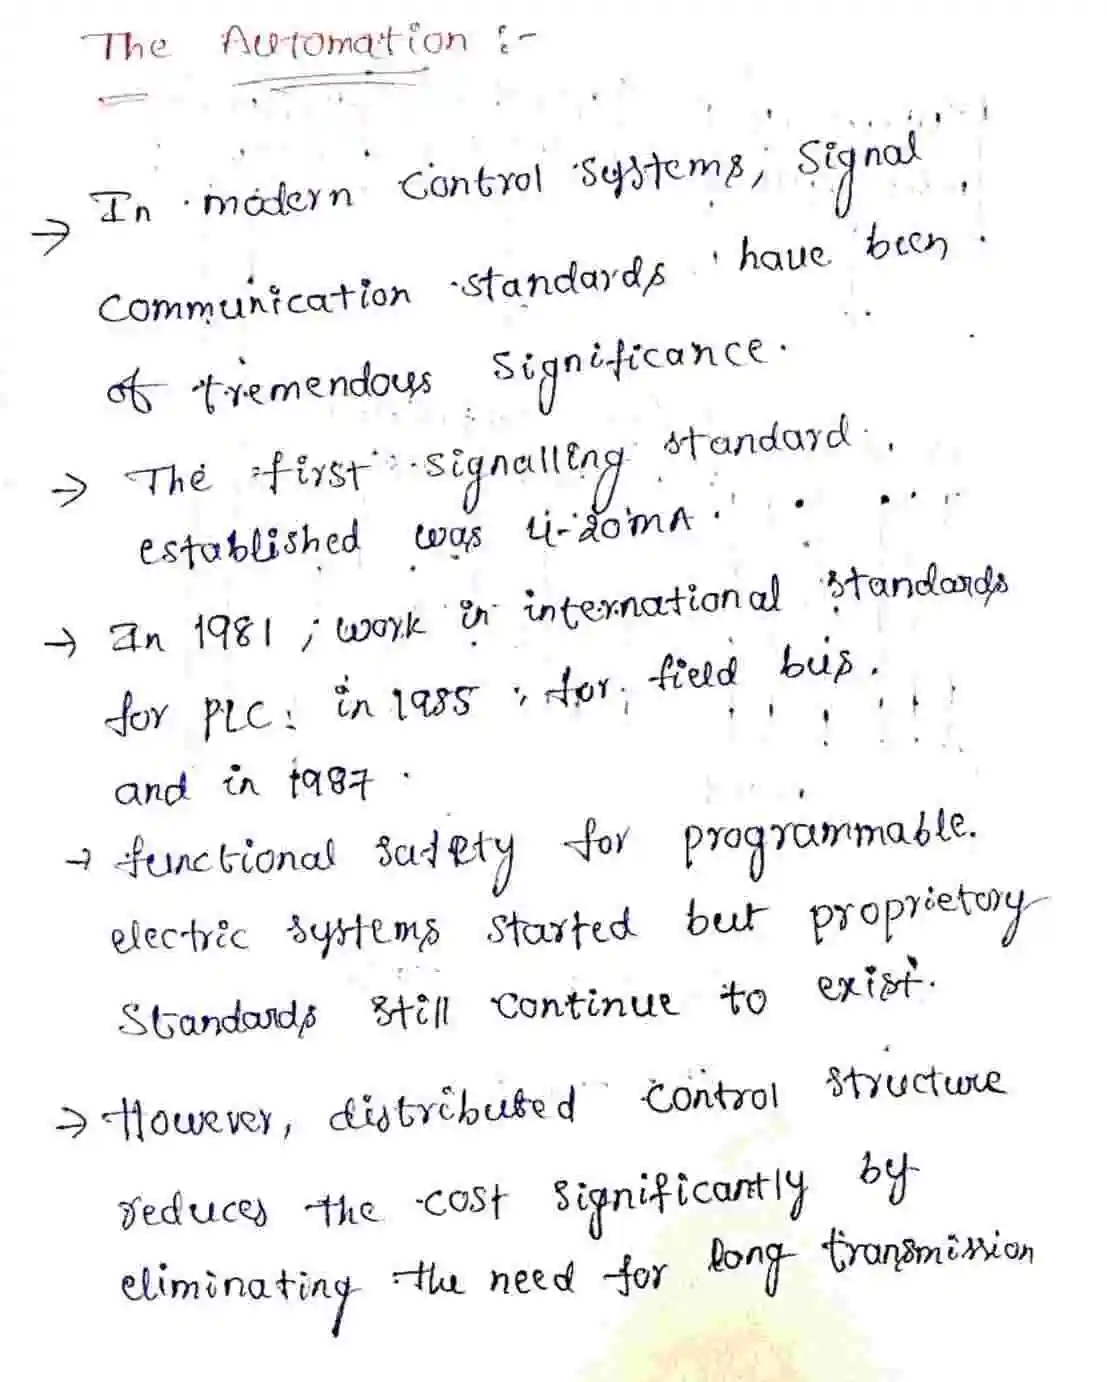 The Automation :-
→ In modern control systems, signal
communication standards have been
of tremendous significance.
→ The first signalling standard
established was 4-20mA.
→ In 1981, work in international standards
for PLC; in 1985, for field bus.
and in 1987.
→ functional safety for programmable.
electric systems started but proprietory
Standards still continue to exist.
→ However, distributed control structure
reduces the cost significantly by
eliminating the need for long transmission